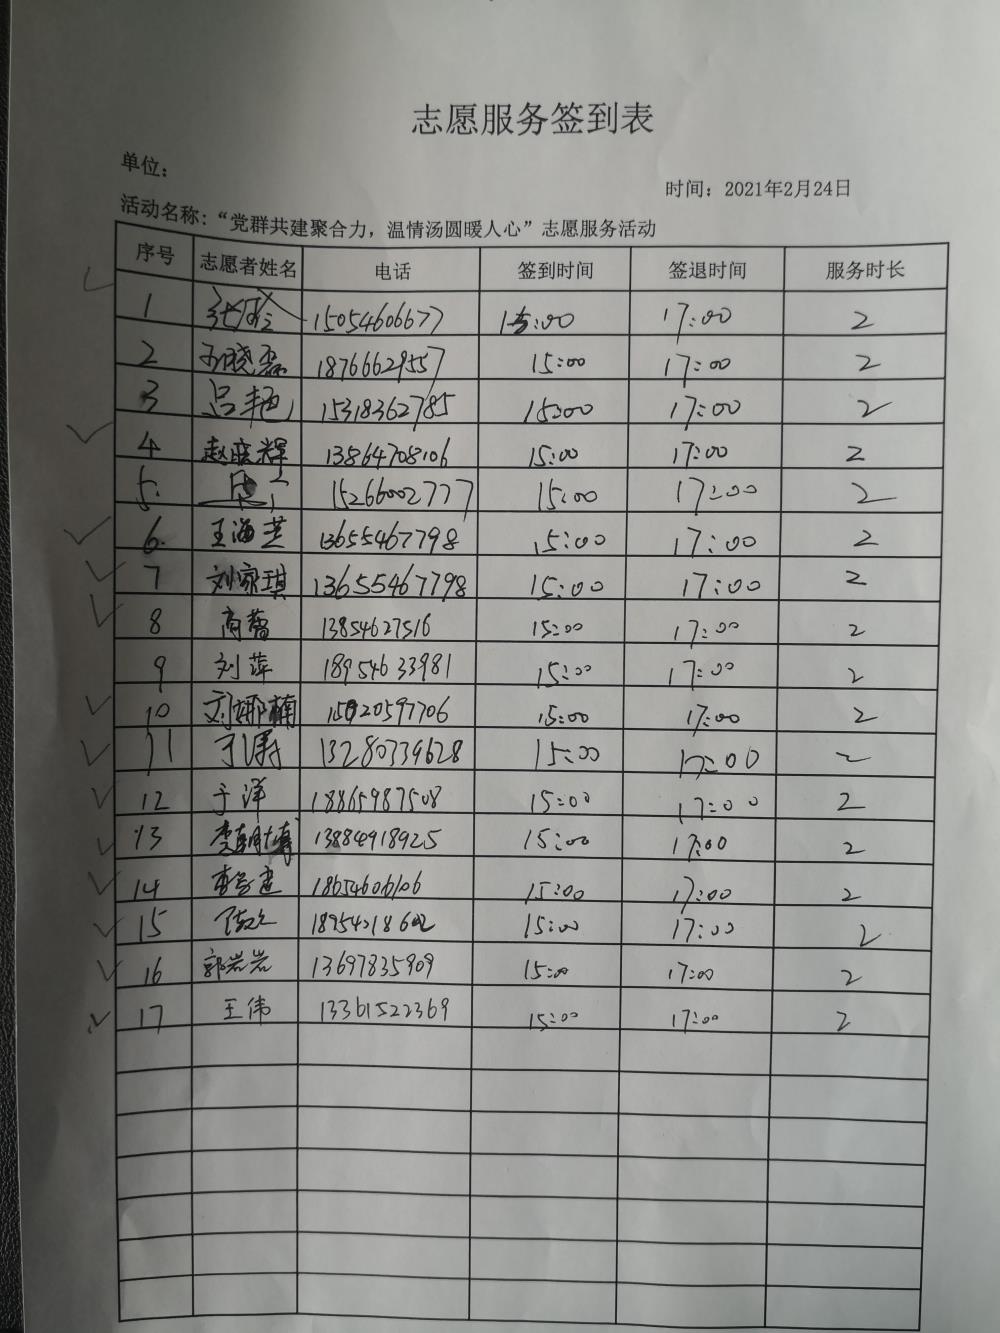 志愿服务签到表
单位：
时间：2021年2月24日
活动名称：“党群共建聚合力，温情汤圆暖人心”志愿服务活动
序号 志愿者姓名 电话 签到时间 签退时间 服务时长
1 15054606677 15:00 17:00 2
2 18766629557 15:00 17:00 2
3 吕艳 15318362785 15:00 17:00 2
4 赵晓辉 13864708106 15:00 17:00 2
5. 15266002777 15:00 17:00 2
6. 王海芝 13655467798 15:00 17:00 2
7 刘家琪 13655467798 15:00 17:00 2
8 高蕾 13854627516 15:00 17:00 2
9 刘萍 18954633981 15:00 17:00 2
10 刘娜楠 15020597706 15:00 17:00 2
11 于涛 13280739628 15:00 17:00 2
12 于洋 18865987508 15:00 17:00 2
13 李朝博 13884918925 15:00 17:00 2
14 18654606106 15:00 17:00 2
15 15:00 17:00 2
16 郭岩岩 13697835909 15:00 17:00 2
17 王伟 13361522369 15:00 17:00 2